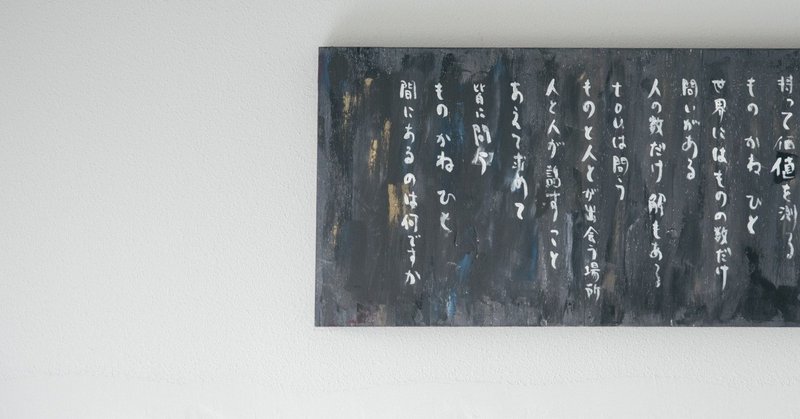 持って価値を測る
ものかねひと
世界にはものの数だけ
問いがある
人の数だけ解もある
touは問う
ものと人とが出会う場所
人と人が話すこと
あえて求めて
皆に問う
ものかねひと
間にあるのは何ですか